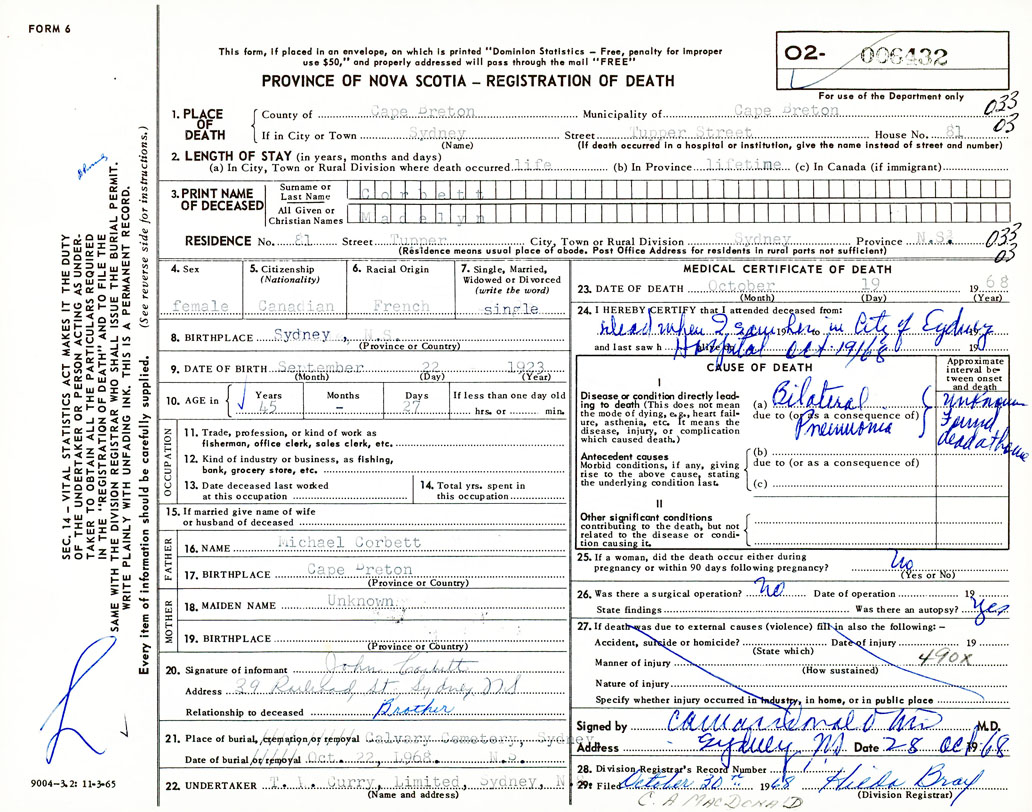 FORM 6
This form, if placed in an envelope, on which is printed "Dominion Statistics – Free, penalty for improper
use $50," and properly addressed will pass through the mail "FREE"
PROVINCE OF NOVA SCOTIA – REGISTRATION OF DEATH
02- 006432
For use of the Department only
033
03
1. PLACE OF DEATH
County of Cape Breton Municipality of Cape Breton
If in City or Town Sydney Street Tupper Street House No. 81
(Name) (If death occurred in a hospital or institution, give the name instead of street and number)
2. LENGTH OF STAY (in years, months and days)
(a) In City, Town or Rural Division where death occurred life (b) In Province lifetime (c) In Canada (if immigrant)
3. PRINT NAME OF DECEASED
Surname or Last Name Corbett
All Given or Christian Names Madelyn
RESIDENCE No. 81 Street Tupper City, Town or Rural Division Sydney Province N.S.
(Residence means usual place of abode. Post Office Address for residents in rural parts not sufficient)
033
03
4. Sex
female
5. Citizenship
(Nationality)
Canadian
6. Racial Origin
French
7. Single, Married,
Widowed or Divorced
(write the word)
single
8. BIRTHPLACE Sydney, N.S.
(Province or Country)
9. DATE OF BIRTH September 22 1923
(Month) (Day) (Year)
10. AGE in
Years Months Days If less than one day old
45 – 27 hrs. or min.
OCCUPATION
11. Trade, profession, or kind of work as
fisherman, office clerk, sales clerk, etc.
12. Kind of industry or business, as fishing,
bank, grocery store, etc.
13. Date deceased last worked
at this occupation
14. Total yrs. spent in
this occupation
15. If married give name of wife
or husband of deceased
FATHER
16. NAME Michael Corbett
17. BIRTHPLACE Cape Breton
(Province or Country)
MOTHER
18. MAIDEN NAME Unknown
19. BIRTHPLACE
(Province or Country)
20. Signature of informant John Corbett
Address 39 Railroad St. Sydney NS
Relationship to deceased Brother
21. Place of burial, cremation or removal Calvary Cemetery, Sydney
Date of burial or removal Oct. 22, 1968. N.S.
22. UNDERTAKER T. I. Curry, Limited Sydney, N.S.
(Name and address)
MEDICAL CERTIFICATE OF DEATH
23. DATE OF DEATH October 19 1968
(Month) (Day) (Year)
24. I HEREBY CERTIFY that I attended deceased from:
dead when I saw her in City of Sydney
19 to
and last saw h alive on
Hospital Oct 19/68
CAUSE OF DEATH
Approximate
interval be-
tween onset
and death
I
Disease or condition directly lead-
ing to death (This does not
mean the mode of dying, e.g., heart fail-
ure, asthenia, etc. It means the
disease, injury, or complication
which caused death.)
(a) Bilateral
due to (or as a consequence of)
Pneumonia
unknown
Found
dead at home
Antecedent causes
Morbid conditions, if any, giving
rise to the above cause, stating
the underlying condition last.
(b)
due to (or as a consequence of)
(c)
II
Other significant conditions
contributing to the death, but not
related to the disease or condi-
tion causing it.
25. If a woman, did the death occur either during
pregnancy or within 90 days following pregnancy? No
(Yes or No)
26. Was there a surgical operation? No Date of operation 19
State findings Was there an autopsy? Yes
27. If death was due to external causes (violence) fill in also the following: –
Accident, suicide or homicide? Date of injury 19
(State which)
490X
Manner of injury
(How sustained)
Nature of injury
Specify whether injury occurred in industry, in home, or in public place
Signed by M.D.
Address Sydney, NS Date 28 Oct 1968
28. Division Registrar's Record Number
29. Filed October 30th 1968 Hilda Bray
(Division Registrar)
C. A MACDONALD
SEC. 14 – VITAL STATISTICS ACT MAKES IT THE DUTY
OF THE UNDERTAKER OR PERSON ACTING AS UNDER-
TAKER TO OBTAIN ALL THE PARTICULARS REQUIRED
IN THE "REGISTRATION OF DEATH" AND TO FILE THE
SAME WITH THE DIVISION REGISTRAR WHO SHALL ISSUE THE BURIAL PERMIT.
WRITE PLAINLY WITH UNFADING INK. THIS IS A PERMANENT RECORD.
Every item of information should be carefully supplied. (See reverse side for instructions.)
9004–3.2: 11-3-65